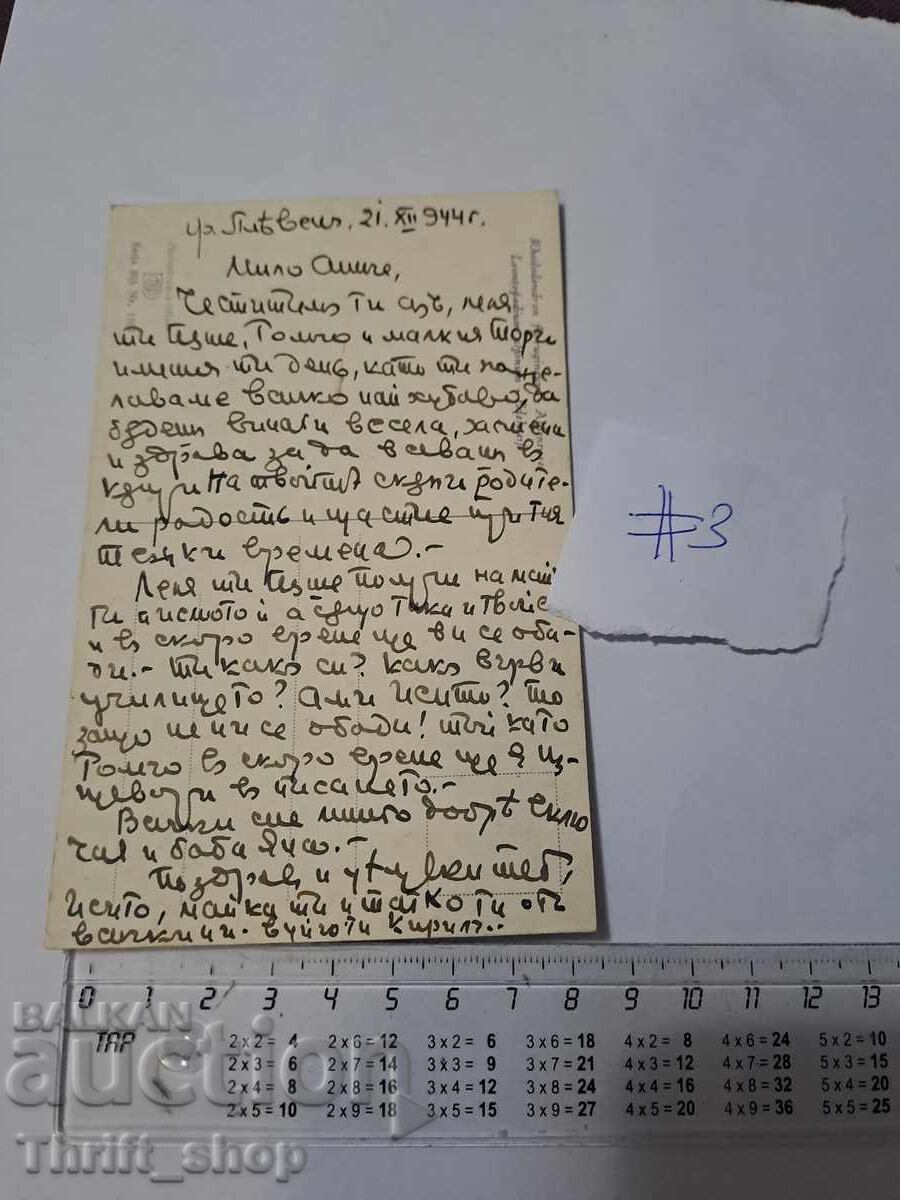 гр. Плѣвенъ, 21. XII 944 г.
Мило
Честитимъ ти азъ, леля
ти Цеце, Томчо и малкия
имения ти день, като ти поже-
лаваме всичко най хубаво, да
бѫдешъ винаги весела, засмени
и здрава за да вливашъ въ
на твоитѣ скѫпи родите-
ли радость и щастие при тия
тежки времена.-
Леля ти Цеце получи на май
ти писмото и а сѫщо така и твоите
и въ скоро време ще ви се оба-
ди.- Ти какъ си? Какъ върви
училището? Ами то
защо не ни се обади! Той като
Томчо въ скоро време ще я из-
въ писането.-
Всички сме много добрѣ вклю
чая и баба
Поздрави и целувки теб,
майка ти и татко ти отъ
всички ни. Вуйчо ти Кирилъ..
#3
0 1 2 3 4 5 6 7 8 9 10 11 12 13
TAP
2 x 2 = 4 2 x 6 = 12 3 x 2 = 6 3 x 6 = 18 4 x 2 = 8 4 x 6 = 24 5 x 2 = 10
2 x 3 = 6 2 x 7 = 14 3 x 3 = 9 3 x 7 = 21 4 x 3 = 12 4 x 7 = 28 5 x 3 = 15
2 x 4 = 8 2 x 8 = 16 3 x 4 = 12 3 x 8 = 24 4 x 4 = 16 4 x 8 = 32 5 x 4 = 20
2 x 5 = 10 2 x 9 = 18 3 x 5 = 15 3 x 9 = 27 4 x 5 = 20 4 x 9 = 36 5 x 5 = 25
БАЛКАН
auction
Thrift_shop